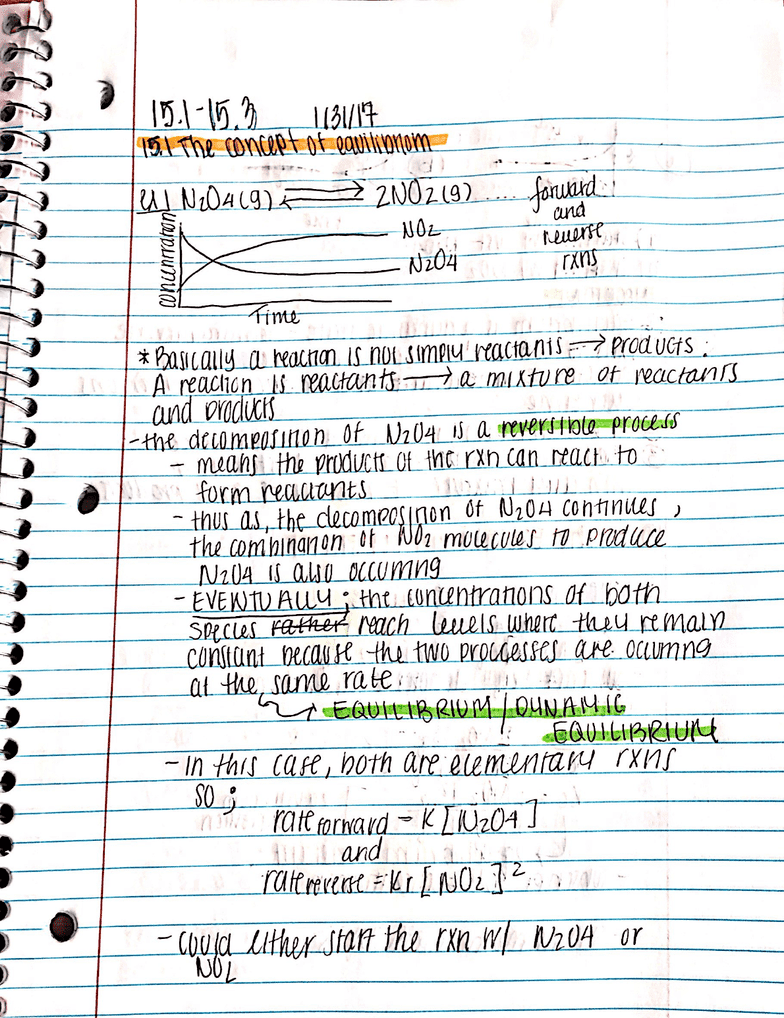 15.1-15.3 1/31/17
15.1 The concept of equilibrium
N2O4(g) ⇌ 2NO2(g) .... forward
and
reverse
rxns
concentration
NO2
N2O4
Time
*Basically a reaction is not simply reactants → products.
A reaction is reactants → a mixture of reactants
and products
-the decomposition of N2O4 is a reversible process
- means the products of the rxn can react to
form reactants
- thus as, the decomposition of N2O4 continues,
the combination of NO2 molecules to produce
N2O4 is also occurring
- EVENTUALLY; the concentrations of both
species rather reach levels where they remain
constant because the two processes are ocurring
at the same rate.
→ EQUILIBRIUM / DYNAMIC
EQUILIBRIUM
- in this case, both are elementary rxns
so;
rate forward = K[N2O4]
and
rate reverse = Kr[NO2]²
- could either start the rxn w/ N2O4 or
NO2